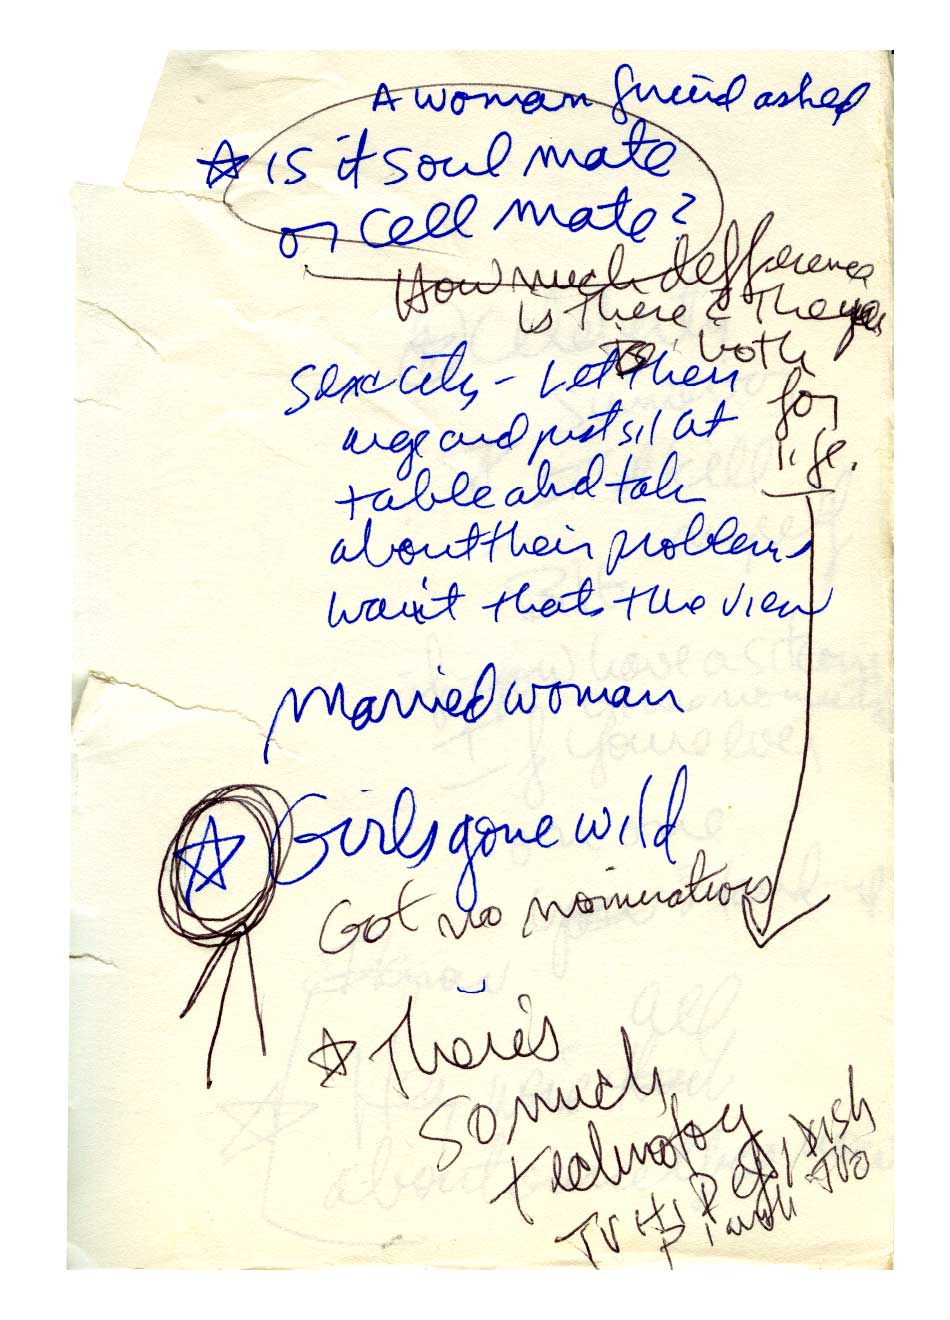 A woman friend asked
☆ is it soul mate
or cell mate?
How much difference
is there? They're
both
for
life.
Sex city - Let them
age and just sit at
table and talk
about their problems
wait thats the view
Married woman
☆ Girls gone wild
Got no nominations
☆ There's
so much
technology
TV Hi Def, Dish
TVo